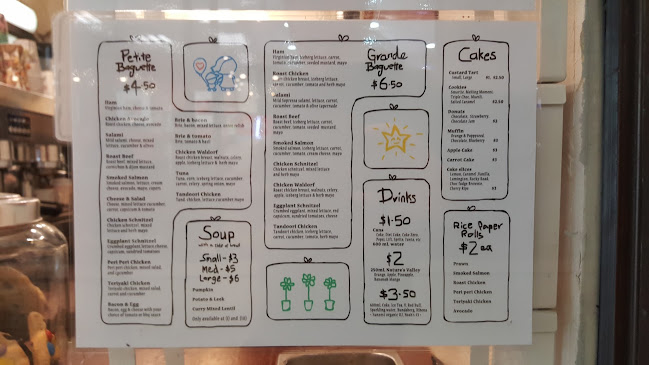 Petite
Baguette
$4.50
Ham
Virginian ham, cheese & tomato
Chicken Avocado
Roast chicken, cheese, avocado
Salami
Mild salami, cheese, mixed
lettuce, cucumber & olive
Roast Beef
Roast beef, mixed lettuce,
Smoked Salmon
Smoked salmon, lettuce, cream
cheese, avocado, mayo, capers
Cheese & Salad
Cheese, mixed lettuce, carrot
cucumber, capsicum & tomato
Chicken Schnitzel
Chicken schnitzel, mixed
lettuce and herb mayo
Eggplant Schnitzel
Crumbed eggplant, lettuce, cheese,
capsicum, sundried tomatoes
Peri Peri Chicken
Peri peri chicken, mixed salad,
and cucumber
Teriyaki Chicken
Teriyaki chicken, mixed salad,
carrot and cucumber
Bacon & Egg
Bacon, egg & cheese with your
choice of tomato or bbq sauce
Brie & bacon
Brie, bacon, mixed lettuce,
Brie & tomato
Brie, tomato & basil
Chicken Waldorf
Roast chicken breast, walnuts, celery
apple, iceberg lettuce & herb mayo
Tuna
Tuna, corn, iceberg lettuce, cucumber
carrot, celery, spring onion, mayo
Tandoori Chicken
Tandoori chicken, lettuce, cucumber
Soup
with a side of bread
Small - $3
Med - $5
Large - $6
Pumpkin
Potato & Leek
Curry Mixed Lentil
Only available at
Ham
Virginian ham, iceberg lettuce, carrot,
tomato, cucumber, seeded mustard, mayo
Roast Chicken
Roast chicken breast, iceberg lettuce,
carrot, cucumber, tomato and herb mayo
Salami
Mild Hungarian salami, iceberg lettuce,
carrot, cucumber, tomato & olive tapenade
Roast Beef
Roast beef, iceberg lettuce, carrot,
cucumber, tomato, seeded mustard,
mayo
Smoked Salmon
Smoked salmon, iceberg lettuce,
cucumber, tomato, cream cheese, mayo
Chicken Schnitzel
Chicken schnitzel, mixed lettuce
and herb mayo
Chicken Waldorf
Roast chicken breast, walnuts, celery,
apple, iceberg lettuce & herb
mayo
Eggplant Schnitzel
Crumbed eggplant, lettuce, red
capsicum, sundried tomatoes, cheese
Tandoori Chicken
Tandoori chicken, iceberg lettuce,
carrot, cucumber, tomato, herb mayo
Grande
Baguette
$6.50
Drinks
$1.50
Cans
Coke, Diet Coke, Coke Zero,
Pepsi, Lift, Sprite, Fanta, etc
600 mL water
$2
350mL Nature's Valley
Orange, Apple, Pineapple,
$3.50
600mL Coke, Ice Tea, V, Red Bull,
Sparkling water, Bundaberg,
Cakes
Custard Tart
Small, Large
$2.50
Cookies
Smartie, Melting Moment,
Triple Choc,
Salted Caramel
$2.50
Donuts
Chocolate, Strawberry,
Chocolate Jam
$3
Muffin
Orange & Poppyseed
Chocolate, Blueberry
$3
Apple Cake
$3
Carrot Cake
$3
Cake slices
Lemon, Caramel, Vanilla
Lamington, Rocky Road
Choc Fudge Brownie,
Cherry Ripe
$3
Rice Paper
Rolls
$2 ea
Prawn
Smoked Salmon
Roast Chicken
Peri peri Chicken
Teriyaki Chicken
Avocado